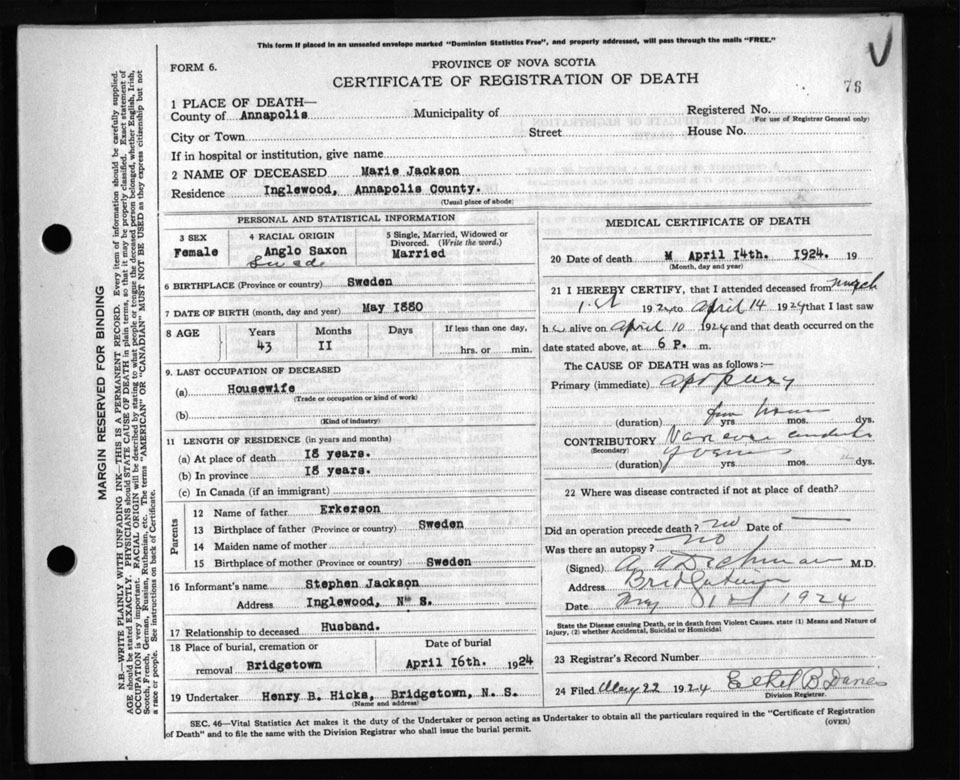 This form if placed in an unsealed envelope marked "Dominion Statistics Free", and properly addressed, will pass through the mails "FREE."
FORM 6.
PROVINCE OF NOVA SCOTIA
CERTIFICATE OF REGISTRATION OF DEATH
76
1 PLACE OF DEATH—
County of Annapolis Municipality of Registered No.
(For use of Registrar General only)
City or Town Street House No.
If in hospital or institution, give name
2 NAME OF DECEASED Marie Jackson
Residence Inglewood, Annapolis County.
(Usual place of abode)
PERSONAL AND STATISTICAL INFORMATION
3 SEX 4 RACIAL ORIGIN 5 Single, Married, Widowed or Divorced. (Write the word.)
Female Anglo Saxon Married
Swede
6 BIRTHPLACE (Province or country) Sweden
7 DATE OF BIRTH (month, day and year) May 1880
8 AGE Years Months Days If less than one day,
43 II hrs. or min.
9. LAST OCCUPATION OF DECEASED
(a) Housewife
(Trade or occupation or kind of work)
(b)
(Kind of industry)
11 LENGTH OF RESIDENCE (in years and months)
(a) At place of death 18 years.
(b) In province 18 years.
(c) In Canada (if an immigrant)
Parents
12 Name of father Erkerson
13 Birthplace of father (Province or country) Sweden
14 Maiden name of mother
15 Birthplace of mother (Province or country) Sweden
16 Informant's name Stephen Jackson
Address Inglewood, N. S.
17 Relationship to deceased Husband.
18 Place of burial, cremation or Date of burial
removal Bridgetown April 16th. 1924
19 Undertaker Henry B. Hicks, Bridgetown, N. S.
(Name and address)
MEDICAL CERTIFICATE OF DEATH
20 Date of death M April 14th. 1924. 19
(Month, day and year)
21 I HEREBY CERTIFY, that I attended deceased from March
1st 1924 to April 14 1924 that I last saw
h alive on April 10 1924 and that death occurred on
date stated above, at 6 P. m.
The CAUSE OF DEATH was as follows:—
Primary (immediate)
(duration) yrs. mos. dys.
CONTRIBUTORY
(Secondary)
(duration) yrs. mos. dys.
22 Where was disease contracted if not at place of death?
Did an operation precede death? no Date of —
Was there an autopsy? no
(Signed) M.D.
Address Bridgetown
Date 1924
State the Disease causing Death, or in death from Violent Causes, state (1) Means and Nature of
Injury, (2) whether Accidental, Suicidal or Homicidal
23 Registrar's Record Number
24 Filed May 22 1924 Ethel B
Division Registrar.
SEC. 46—Vital Statistics Act makes it the duty of the Undertaker or person acting as Undertaker to obtain all the particulars required in the "Certificate of Registration
of Death" and to file the same with the Division Registrar who shall issue the burial permit. (OVER)
MARGIN RESERVED FOR BINDING
N.B.—WRITE PLAINLY WITH UNFADING INK—THIS IS A PERMANENT RECORD. Every item of information should be carefully supplied.
AGE should be stated EXACTLY. PHYSICIANS should STATE CAUSE OF DEATH in plain terms, so that it may be properly classified. Exact statement of
OCCUPATION is very important. RACIAL ORIGIN will be described by stating to what people or tongue the deceased person belonged, whether English, Irish,
Scotch, French, German, Russian, Ruthenian, etc. The terms "AMERICAN" OR "CANADIAN" MUST NOT BE USED as they express citizenship but not
a race or people. See instructions on back of Certificate.